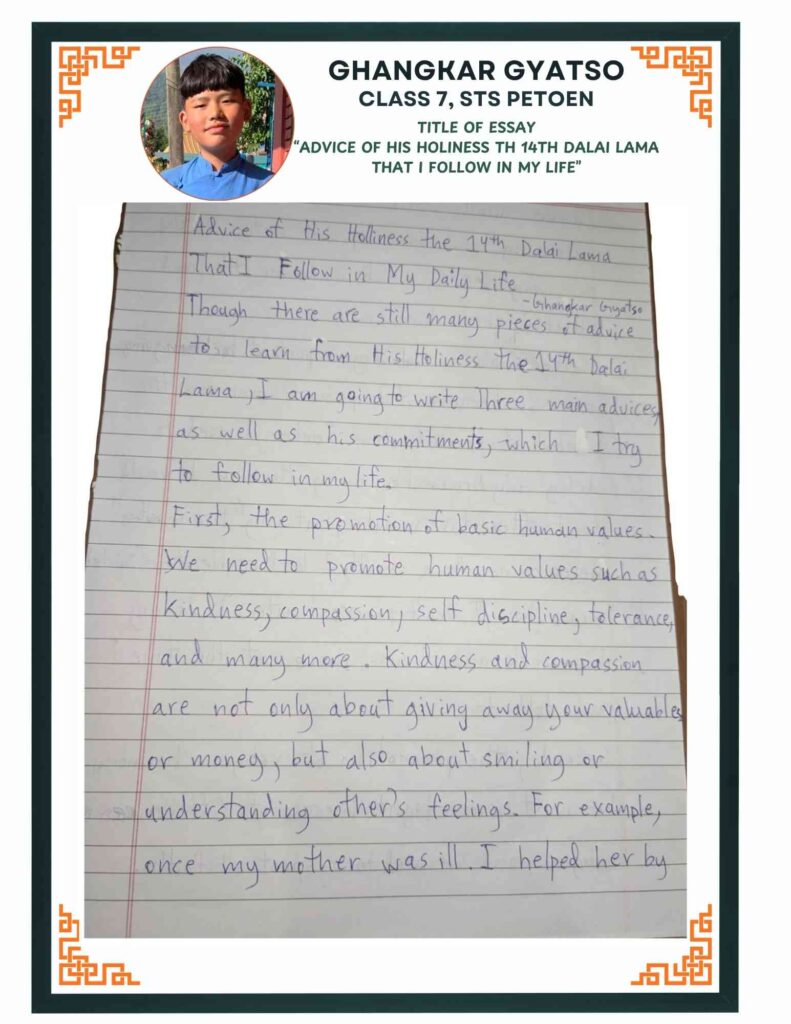 GHANGKAR GYATSO
CLASS 7, STS PETOEN
TITLE OF ESSAY
"ADVICE OF HIS HOLINESS TH 14TH DALAI LAMA
THAT I FOLLOW IN MY LIFE"
Advice of His Holliness the 14th Dalai Lama
That I Follow in My Daily Life
-Ghangkar Gyatso
Though there are still many pieces of advice
to learn from His Holiness the 14th Dalai
Lama, I am going to write Three main advices,
as well as his commitments, which I try
to follow in my life.
First, the promotion of basic human values.
We need to promote human values such as
kindness, compassion, self discipline, tolerance,
and many more. Kindness and compassion
are not only about giving away your valuables
or money, but also about smiling or
understanding other's feelings. For example,
once my mother was ill. I helped her by